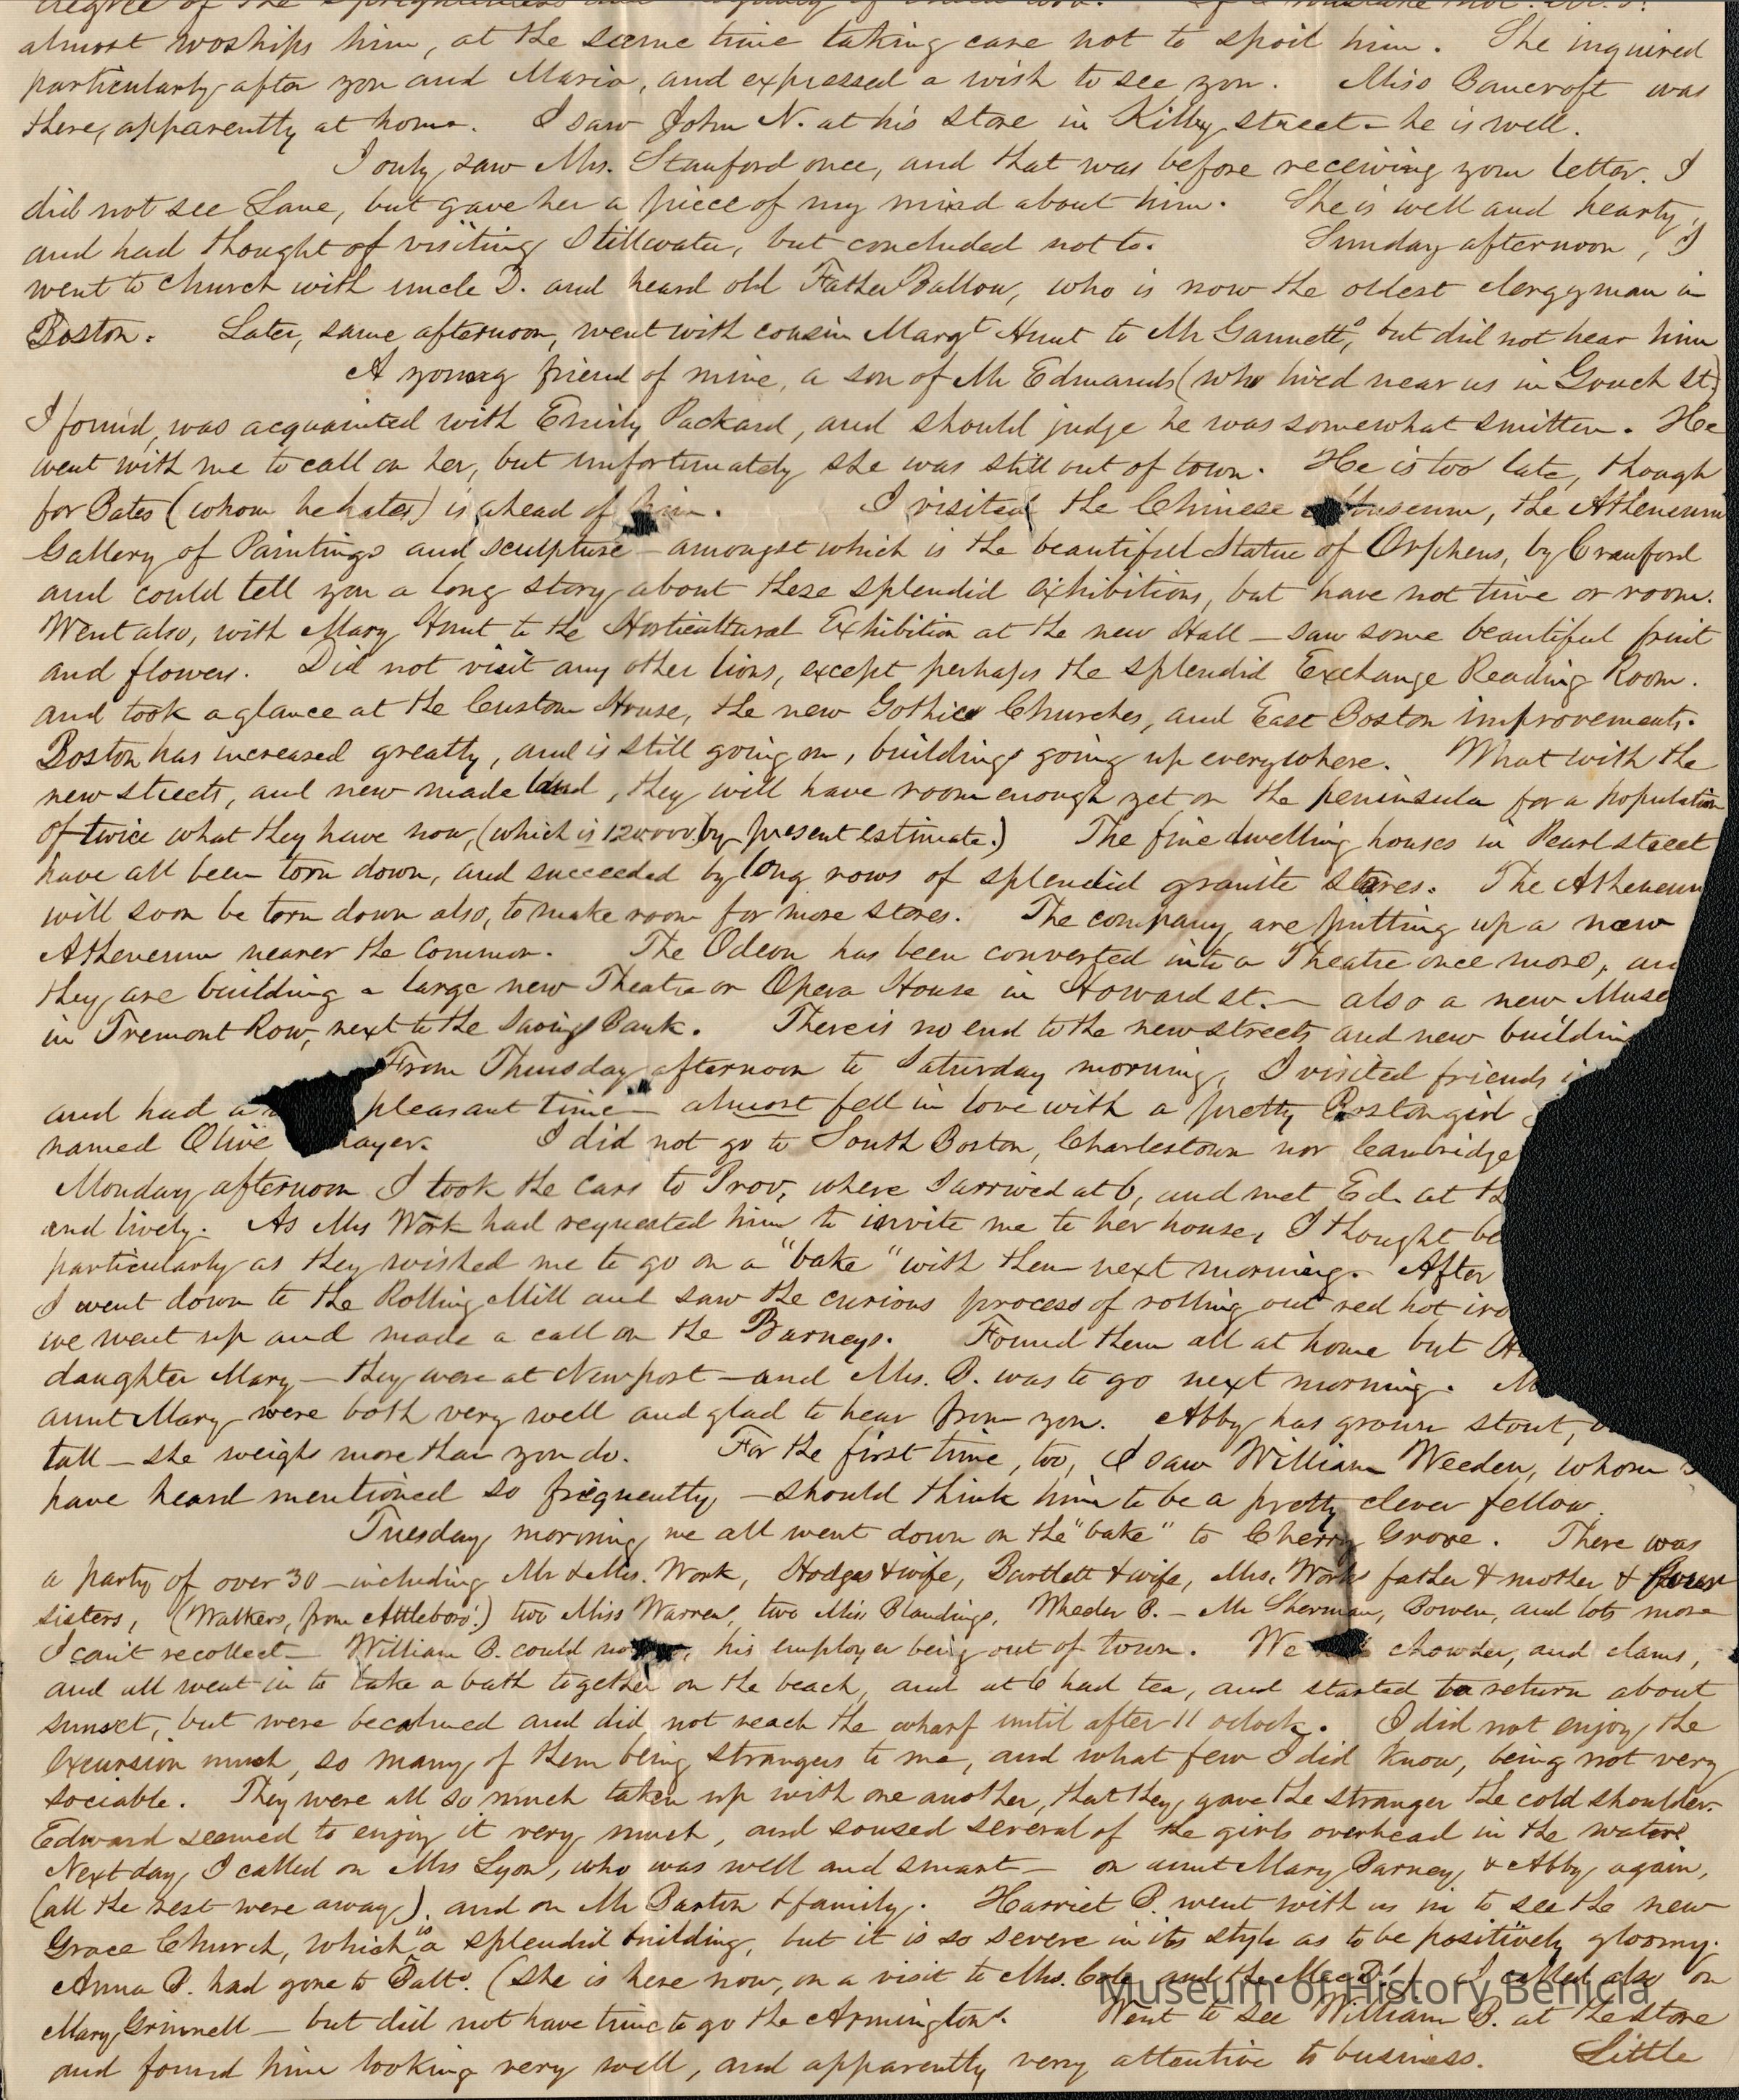 degree of the sprightliness and
almost woships him, at the same time taking care not to spoil him. She inquired
particularly after you and Maria, and expressed a wish to see you. Miss Bancroft was
there, apparently at home. I saw John N. at his store in Kilby street – he is well.
I only saw Mrs. Stanford once, and that was before receiving your letter. I
did not see Lane, but gave her a piece of my mind about him. She is well and hearty,
and had thought of visiting Stillwater, but concluded not to. Sunday afternoon, I
went to church with uncle D. and heard old Father Ballou, who is now the oldest clergyman in
Boston. Later, same afternoon, went with cousin Margt Hunt to Mr Gannett's, but did not hear him
A young friend of mine, a son of Mr Edmands (who lived near us in Gouch st.)
I found, was acquainted with Emily Packard, and should judge he was somewhat smitten. He
went with me to call on her, but unfortunately she was still out of town. He is too late, though
for Bates (whom he hates) is ahead of him. I visited the Chinese Museum, the Atheneum
Gallery of Paintings and sculpture – amongst which is the beautiful Statue of Orpheus, by Crawford
and could tell you a long story about these splendid exhibitions, but have not time or room.
Went also, with Mary Hunt to the Horticultural Exhibition at the new Hall – saw some beautiful fruit
and flowers. Did not visit any other lions, except perhaps the splendid Exchange Reading Room.
and took a glance at the Custom House, the new Gothic Churches, and East Boston improvements.
Boston has increased greatly, and is still going on, buildings going up everywhere. What with the
new streets, and new made land, they will have room enough yet on the peninsula for a population
of twice what they have now, (which is 120000 by present estimate.) The fine dwelling houses in Pearl street
have all been torn down, and succeeded by long rows of splendid granite stores. The Atheneum
will soon be torn down also, to make room for more stores. The company are putting up a new
Atheneum nearer the Common. The Odeon has been converted into a Theatre once more, and
they are building a large new Theatre or Opera House in Howard st. – also a new Muse
in Tremont Row, next to the Savings Bank. There is no end to the new streets and new building
From Thursday afternoon to Saturday morning, I visited friends i
and had a pleasant time – almost fell in love with a pretty Boston girl
named Olive hayer. I did not go to South Boston, Charlestown nor Cambridge
Monday afternoon I took the cars to Prov, where I arrived at 6, and met Ed. at th
and lively. As Mrs Work had requested him to invite me to her house, I thought be
particularly as they wished me to go on a "bake" with them next morning. After
I went down to the Rolling Mill and saw the curious process of rolling out red hot iro
we went up and made a call on the Barneys. Found them all at home but
daughter Mary – they were at Newport – and Mrs. B. was to go next morning. M
aunt Mary were both very well and glad to hear from you. Abby has grown stout,
tall – she weighs more than you do. For the first time, too, I saw William Weeden, whom I
have heard mentioned so frequently – should think him to be a pretty clever fellow.
Tuesday morning we all went down on the "bake" to Cherry Grove. There was
a party of over 30 – including Mr & Mrs. Work, Hodges & wife, Bartlett & wife, Mrs. Works father & mother & four
sisters, (Walkers, from Attleboro'.) two Miss Warrens, two Miss Blandings, Wheder B. – Mr Sherman, Bowen, and lots more
I can't recollect – William B. could no , his employer being out of town. We chowder, and clams,
and all went in to take a bath together on the beach, and at 6 had tea, and started to return about
sunset, but were becalmed and did not reach the wharf until after 11 oclock. I did not enjoy the
excursion much, so many of them being strangers to me, and what few I did know, being not very
sociable. They were all so much taken up with one another, that they gave the stranger the cold shoulder.
Edward seemed to enjoy it very much, and soused several of the girls overhead in the water.
Next day, I called on Mrs Lyon, who was well and smart – on aunt Mary Barney & Abby again,
(all the rest were away), and on Mr Barton & family. Harriet B. went with us in to see the new
Grace Church, which is a splendid building, but it is so severe in its style as to be positively gloomy.
Anna B. had gone to Balto. (she is here now, on a visit to Mrs. Cole and the I called also on
Mary Grinnell – but did not have time to go the Armingtons. Went to see William B. at the store
and found him looking very well, and apparently very attentive to business. Little
Museum of History Benicia